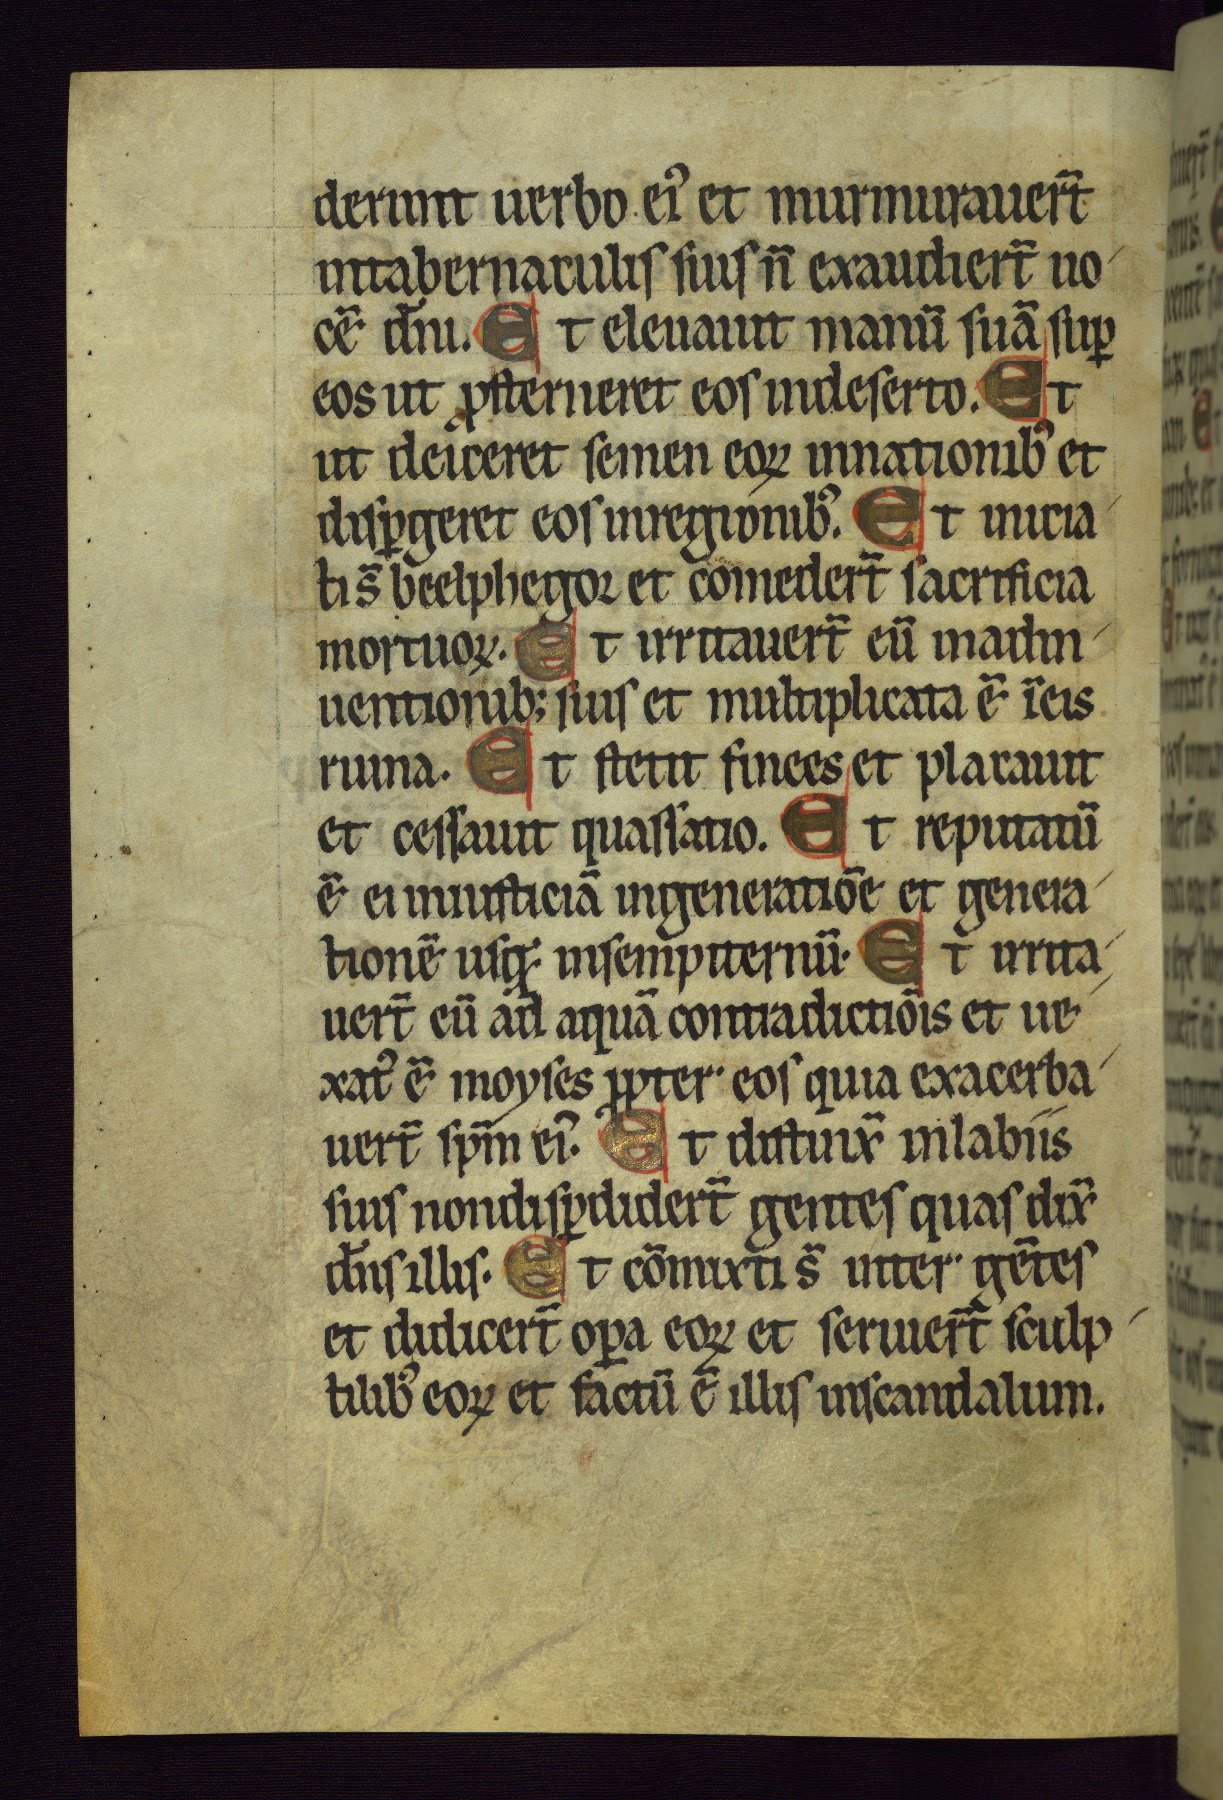 derunt uerbo eiꝰ et murmurauer̃t
intabernaculis suis ñ exaudier̃t uo
cẽ dñi. Et eleuauit manũ suã suꝑ
eos ut ꝓsterneret eos indeserto. Et
ut deiceret semen eoꝝ innationibꝰ et
disꝑgeret eos inregionibꝰ. Et inicia
ti s̃ beelphegor et comeder̃t sacrificia
mortuoꝝ. Et irritauer̃t eũ inadin
uentionib; suis et multiplicata ẽ ĩeis
ruina. Et stetit finees et placauit
et cessauit quassatio. Et reputatũ
ẽ ei iniusticiã ingeneratiõe et genera
tionẽ usqꝫ insempiternũ. Et irrita
uer̃t eũ ad aquã contradictiõis et ue
xatꝰ ẽ moyses ꝓpter eos quia exacerba
uer̃t sp̃m eiꝰ. Et distinix̃ inlabiis
suis nondisꝑdider̃t gentes quas dix̃
dñs illis. Et cõmixti s̃ inter gẽtes
et didicer̃t oꝑa eoꝝ et seruier̃t sculp
tilibꝰ eoꝝ et factũ ẽ illis inscandalum.